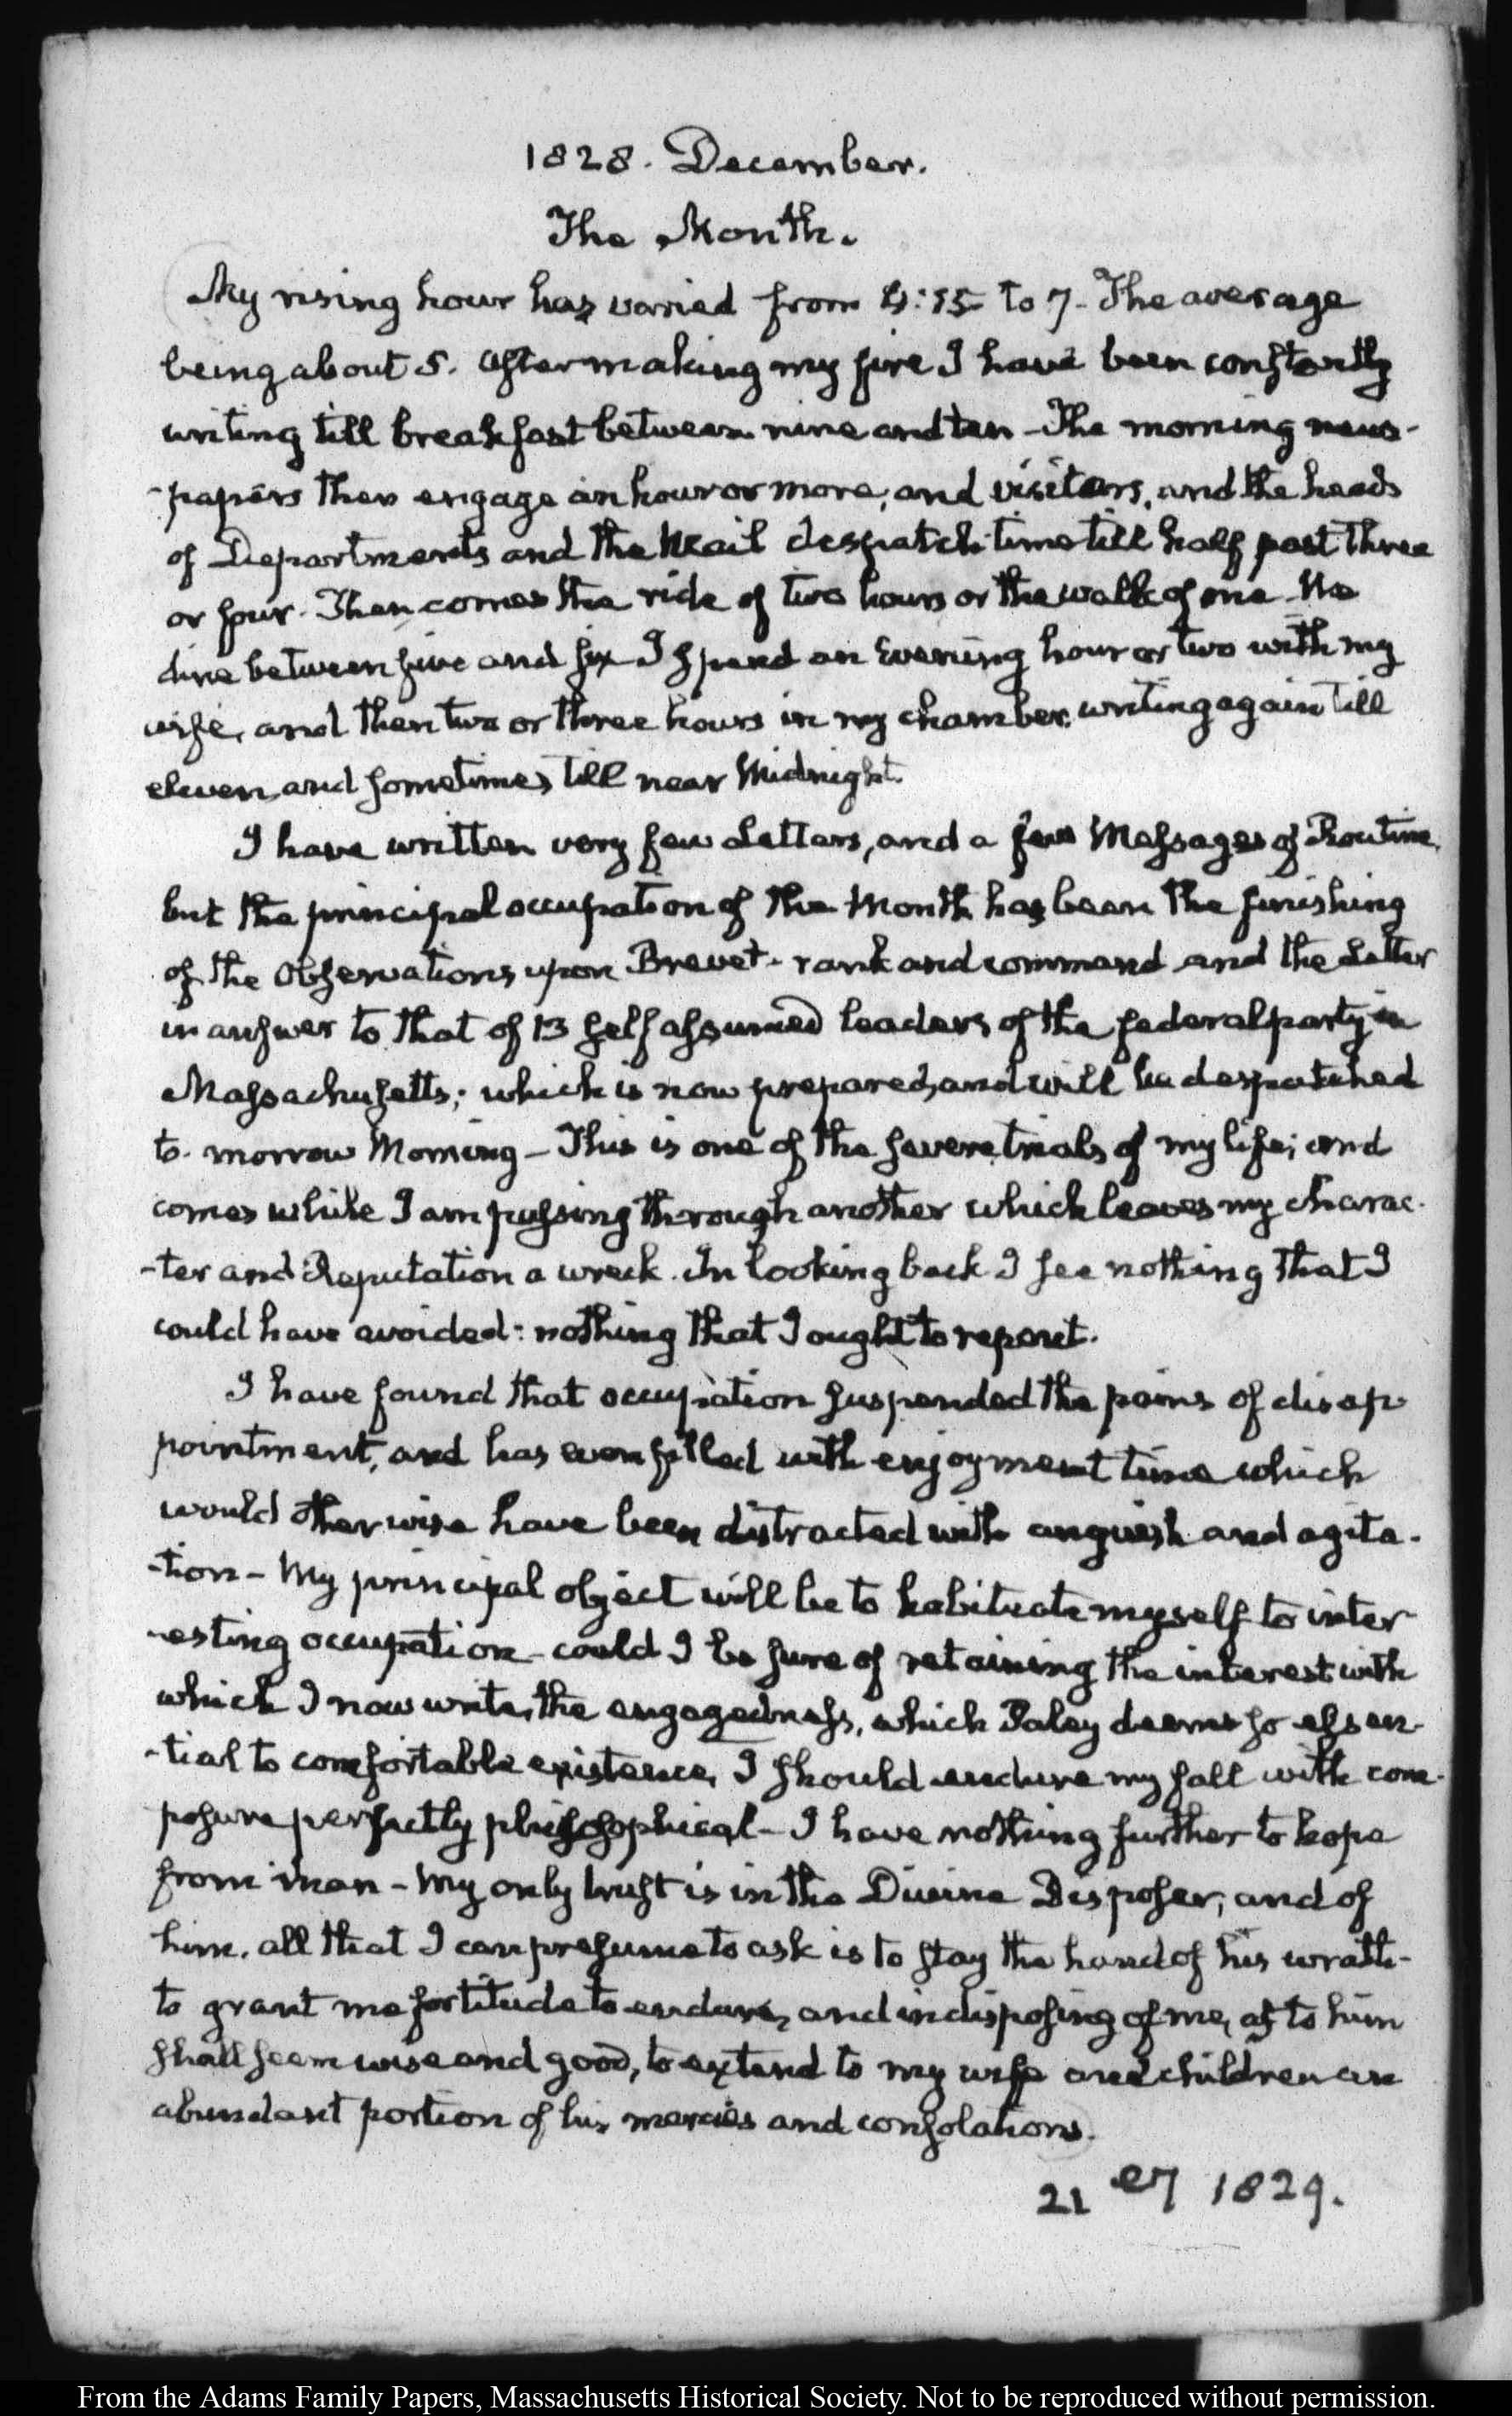 1828. December.
The Month.
My rising hour has varied from 4:15 to 7. The average
being about 5. After making my fire I have been constantly
writing till breakfast between nine and ten – The morning news-
-papers then engage an hour or more, and visitors, and the heads
of Departments and the Mail despatch time till half past three
or four. Then comes the ride of two hours or the walk of one. We
dine between five and six – I spend an Evening hour or two with my
wife, and then two or three hours in my chamber, writing again till
eleven, and sometimes till near Midnight.
I have written very few Letters, and a few Messages of Routine,
but the principal occupation of the Month has been the finishing
of the Observations upon Brevet-rank and command and the Letter
in answer to that of 13 self assumed leaders of the federal party in
Massachusetts; which is now prepared, and will be despatched
to-morrow Morning – This is one of the severe trials of my life; and
comes while I am passing through another which leaves my charac-
-ter and Reputation a wreck. In looking back I see nothing that I
could have avoided: nothing that I ought to repent.
I have found that occupation suspended the pains of disap-
pointment, and has even filled with enjoyment time which
would otherwise have been distracted with anguish and agita-
-tion – My principal object will be to habituate myself to inter
-esting occupation – could I be sure of retaining the interest with
which I now write, the engagedness, which Paley deems so essen-
-tial to comfortable existence, I should endure my fall with com-
posure perfectly philosophical – I have nothing further to hope
from man – My only trust is in the Divine Disposer, and of
him, all that I can presume to ask is to stay the hand of his wrath –
to grant me fortitude to endure, and in disposing of me, as to him
shall seem wise and good, to extend to my wife and children an
abundant portion of his mercies and consolations.
1829.
From the Adams Family Papers, Massachusetts Historical Society. Not to be reproduced without permission.